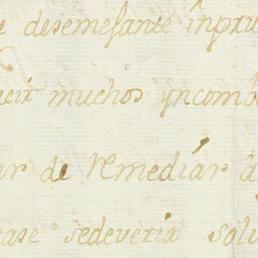 desemefante inpru
ucir muchos yncomb
ar de Remediár a
ase sedeveria solu